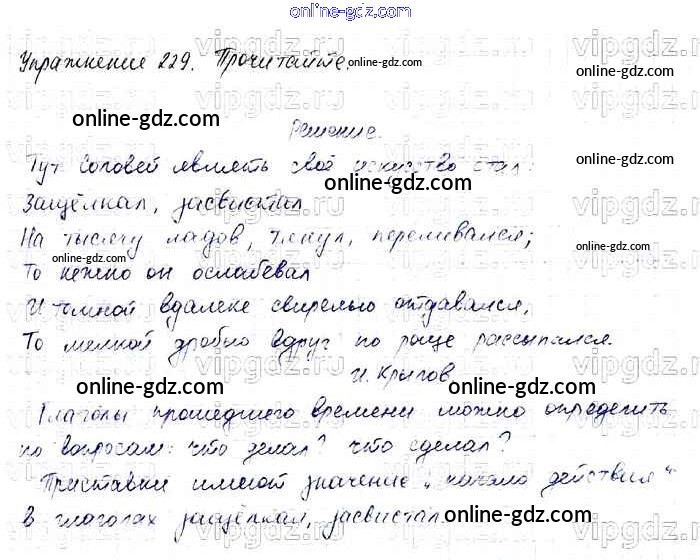 online-gdz.com
Упражнение 229. Прочитайте.
online-gdz.com
online-gdz.com
Решение.
Тут Соловей являть своё искусство стал:
online-gdz.com
Защёлкал, засвистал
На тысячу ладов, тянул, переливался;
online-gdz.com
То нежно он ослабевал
И томной вдалеке свирелью отдавался,
online-gdz.com
То мелкой дробью вдруг по роще рассыпался.
И. Крылов
online-gdz.com
online-gdz.com
Глаголы прошедшего времени можно определить
по вопросам: что делал? что сделал?
online-gdz.com
Приставки имеют значение „начало действия“
в глаголах защёлкал, засвистал.
online-gdz.com
online-gdz.com
vipgdz.ru